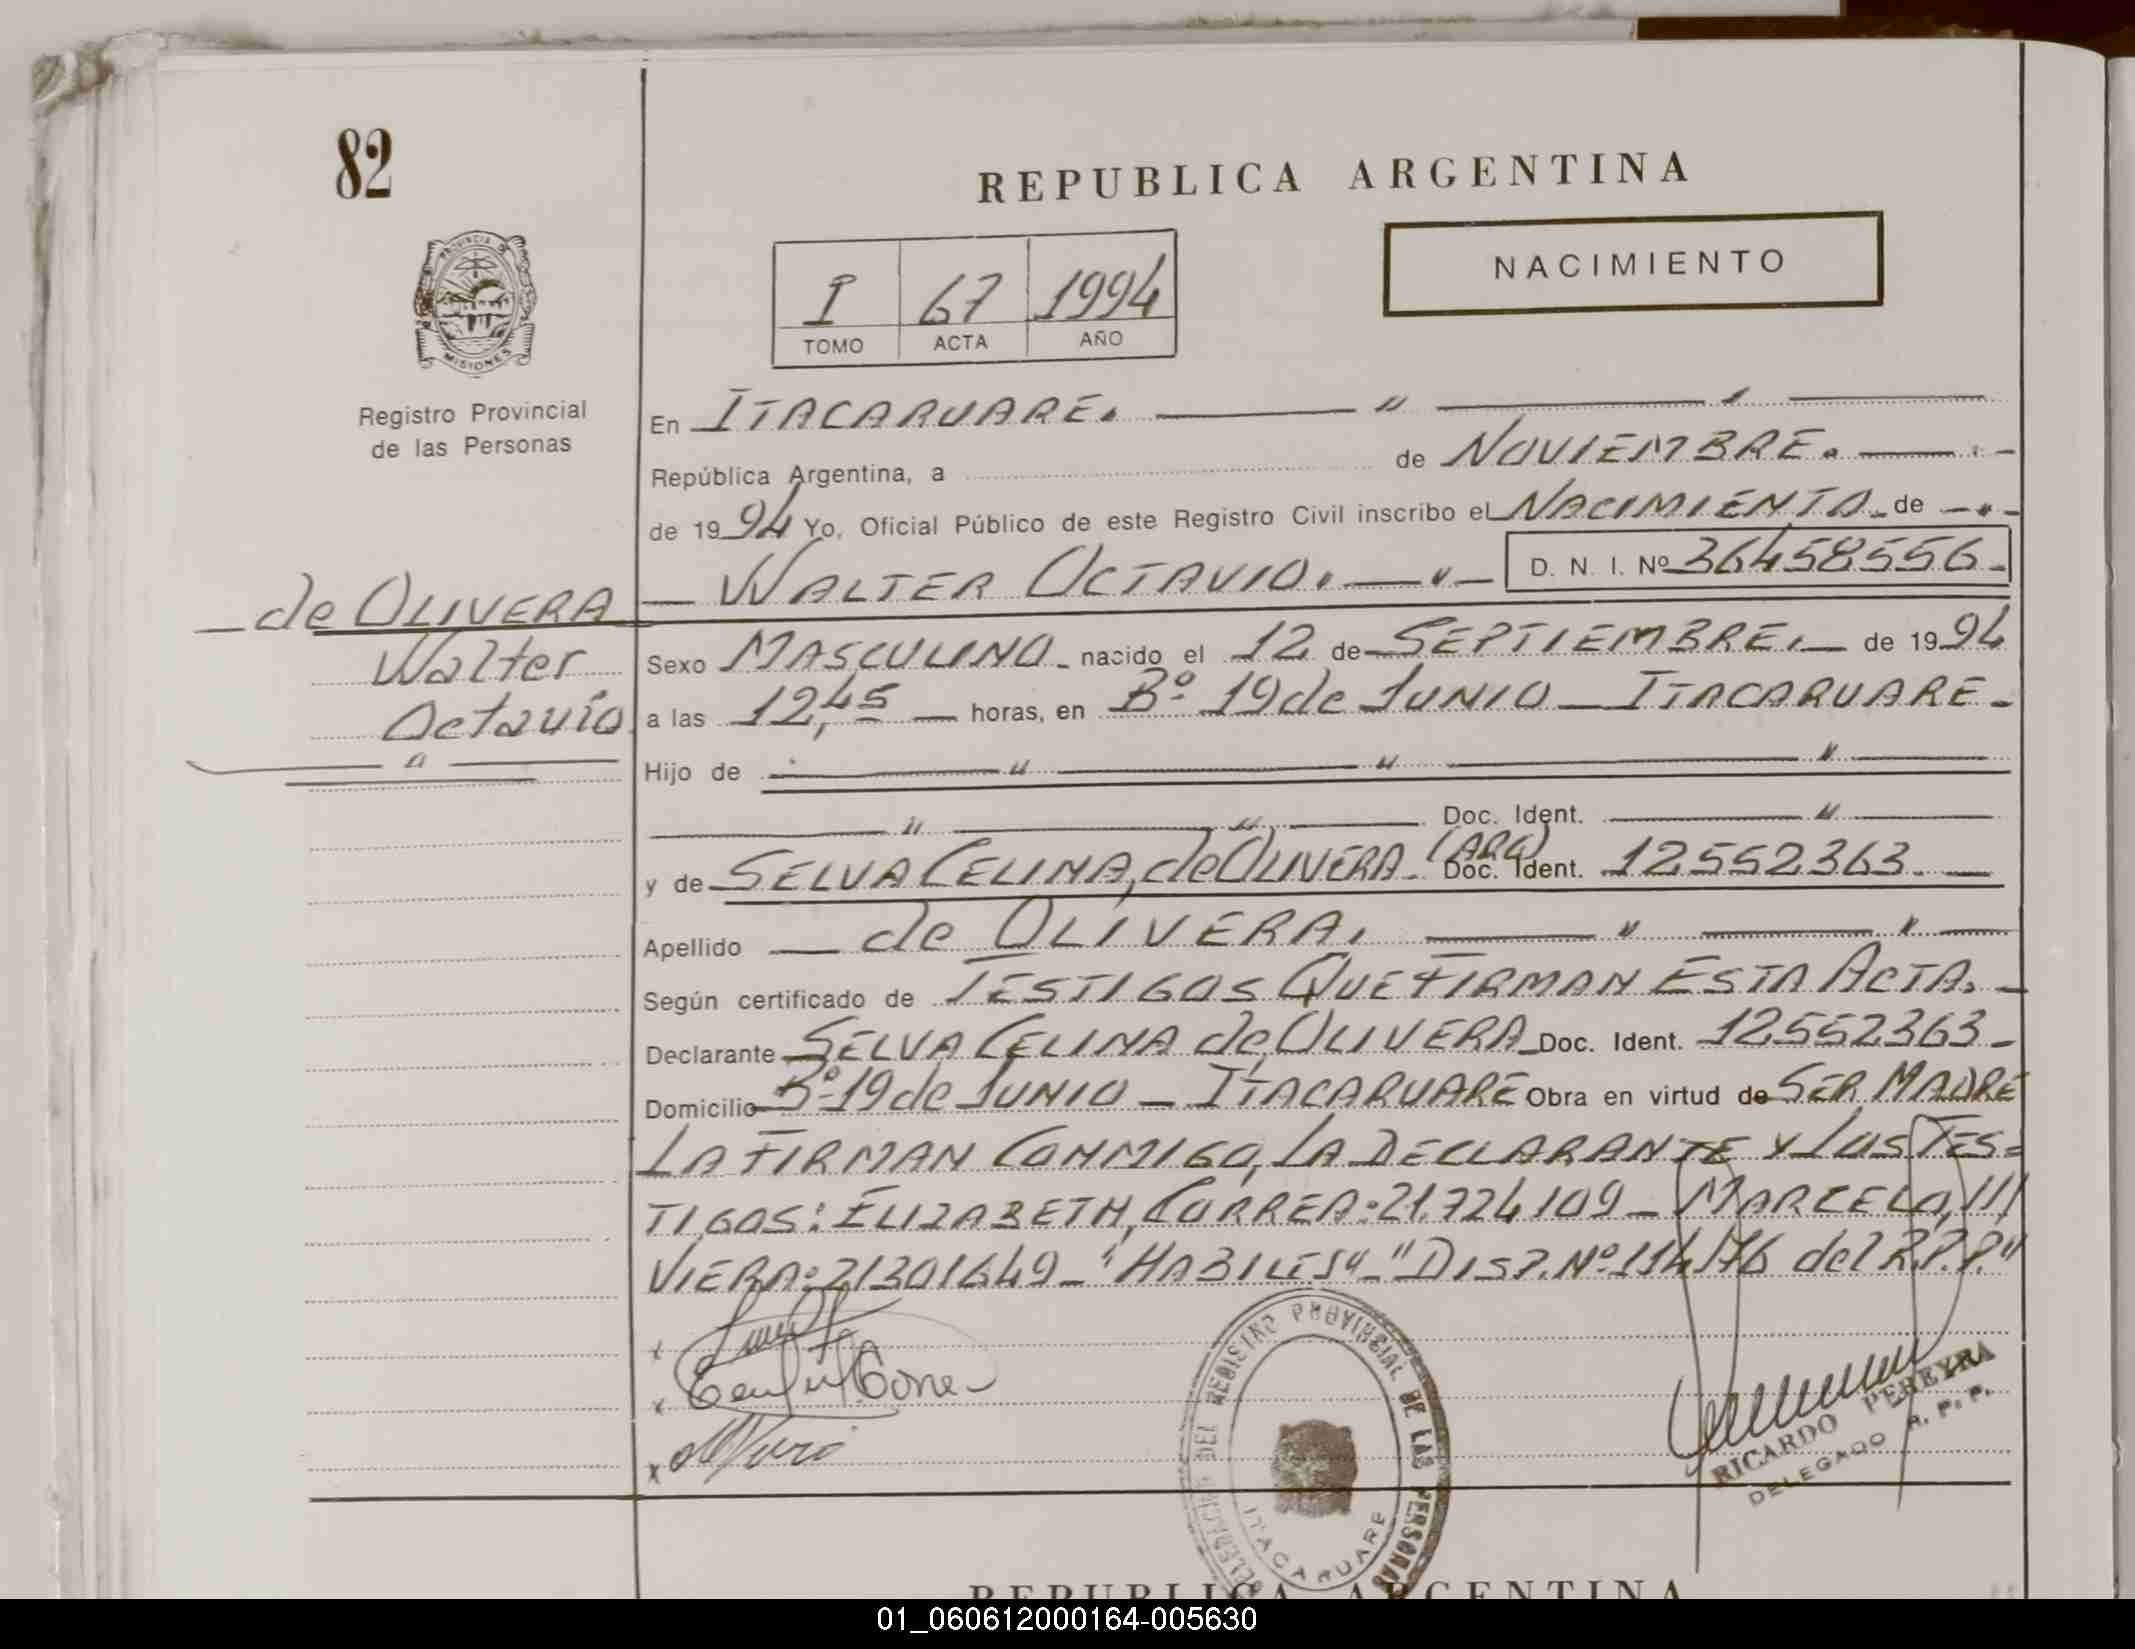 82
REPUBLICA ARGENTINA
NACIMIENTO
I 67 1994
TOMO ACTA AÑO
PROVINCIA DE
MISIONES
Registro Provincial
de las Personas
En ITACARUARE.
República Argentina, a de NOVIEMBRE.
de 1994 Yo, Oficial Público de este Registro Civil inscribo el NACIMIENTO de
WALTER OCTAVIO. D. N. I. Nº 36458556.
de OLIVERA
Walter
Octavio
Sexo MASCULINO nacido el 12 de SEPTIEMBRE. de 1994
a las 12,45 horas, en Bº 19 de JUNIO ITACARUARE.
Hijo de
Doc. Ident.
y de SELVA CELINA, de OLIVERA. (ARG) Doc. Ident. 12552363.
Apellido de OLIVERA.
Según certificado de TESTIGOS QUE FIRMAN ESTA ACTA.
Declarante SELVA CELINA de OLIVERA Doc. Ident. 12552363
Domicilio Bº 19 de JUNIO - ITACARUARE Obra en virtud de SER MADRE
LA FIRMAN CONMIGO, LA DECLARANTE Y LOS TES=
TIGOS: ELIZABETH, CORREA: 21.724109 - MARCELO, ///
VIERA: 21301649 - "HABILES" - "DISP. Nº 114/76 del R.P.P."
DELEGACION DEL REGISTRO PROVINCIAL DE LAS PERSONAS
ITACARUARE
RICARDO PEREYRA
DELEGADO R. P. P.
REPUBLICA ARGENTINA
01_060612000164-005630